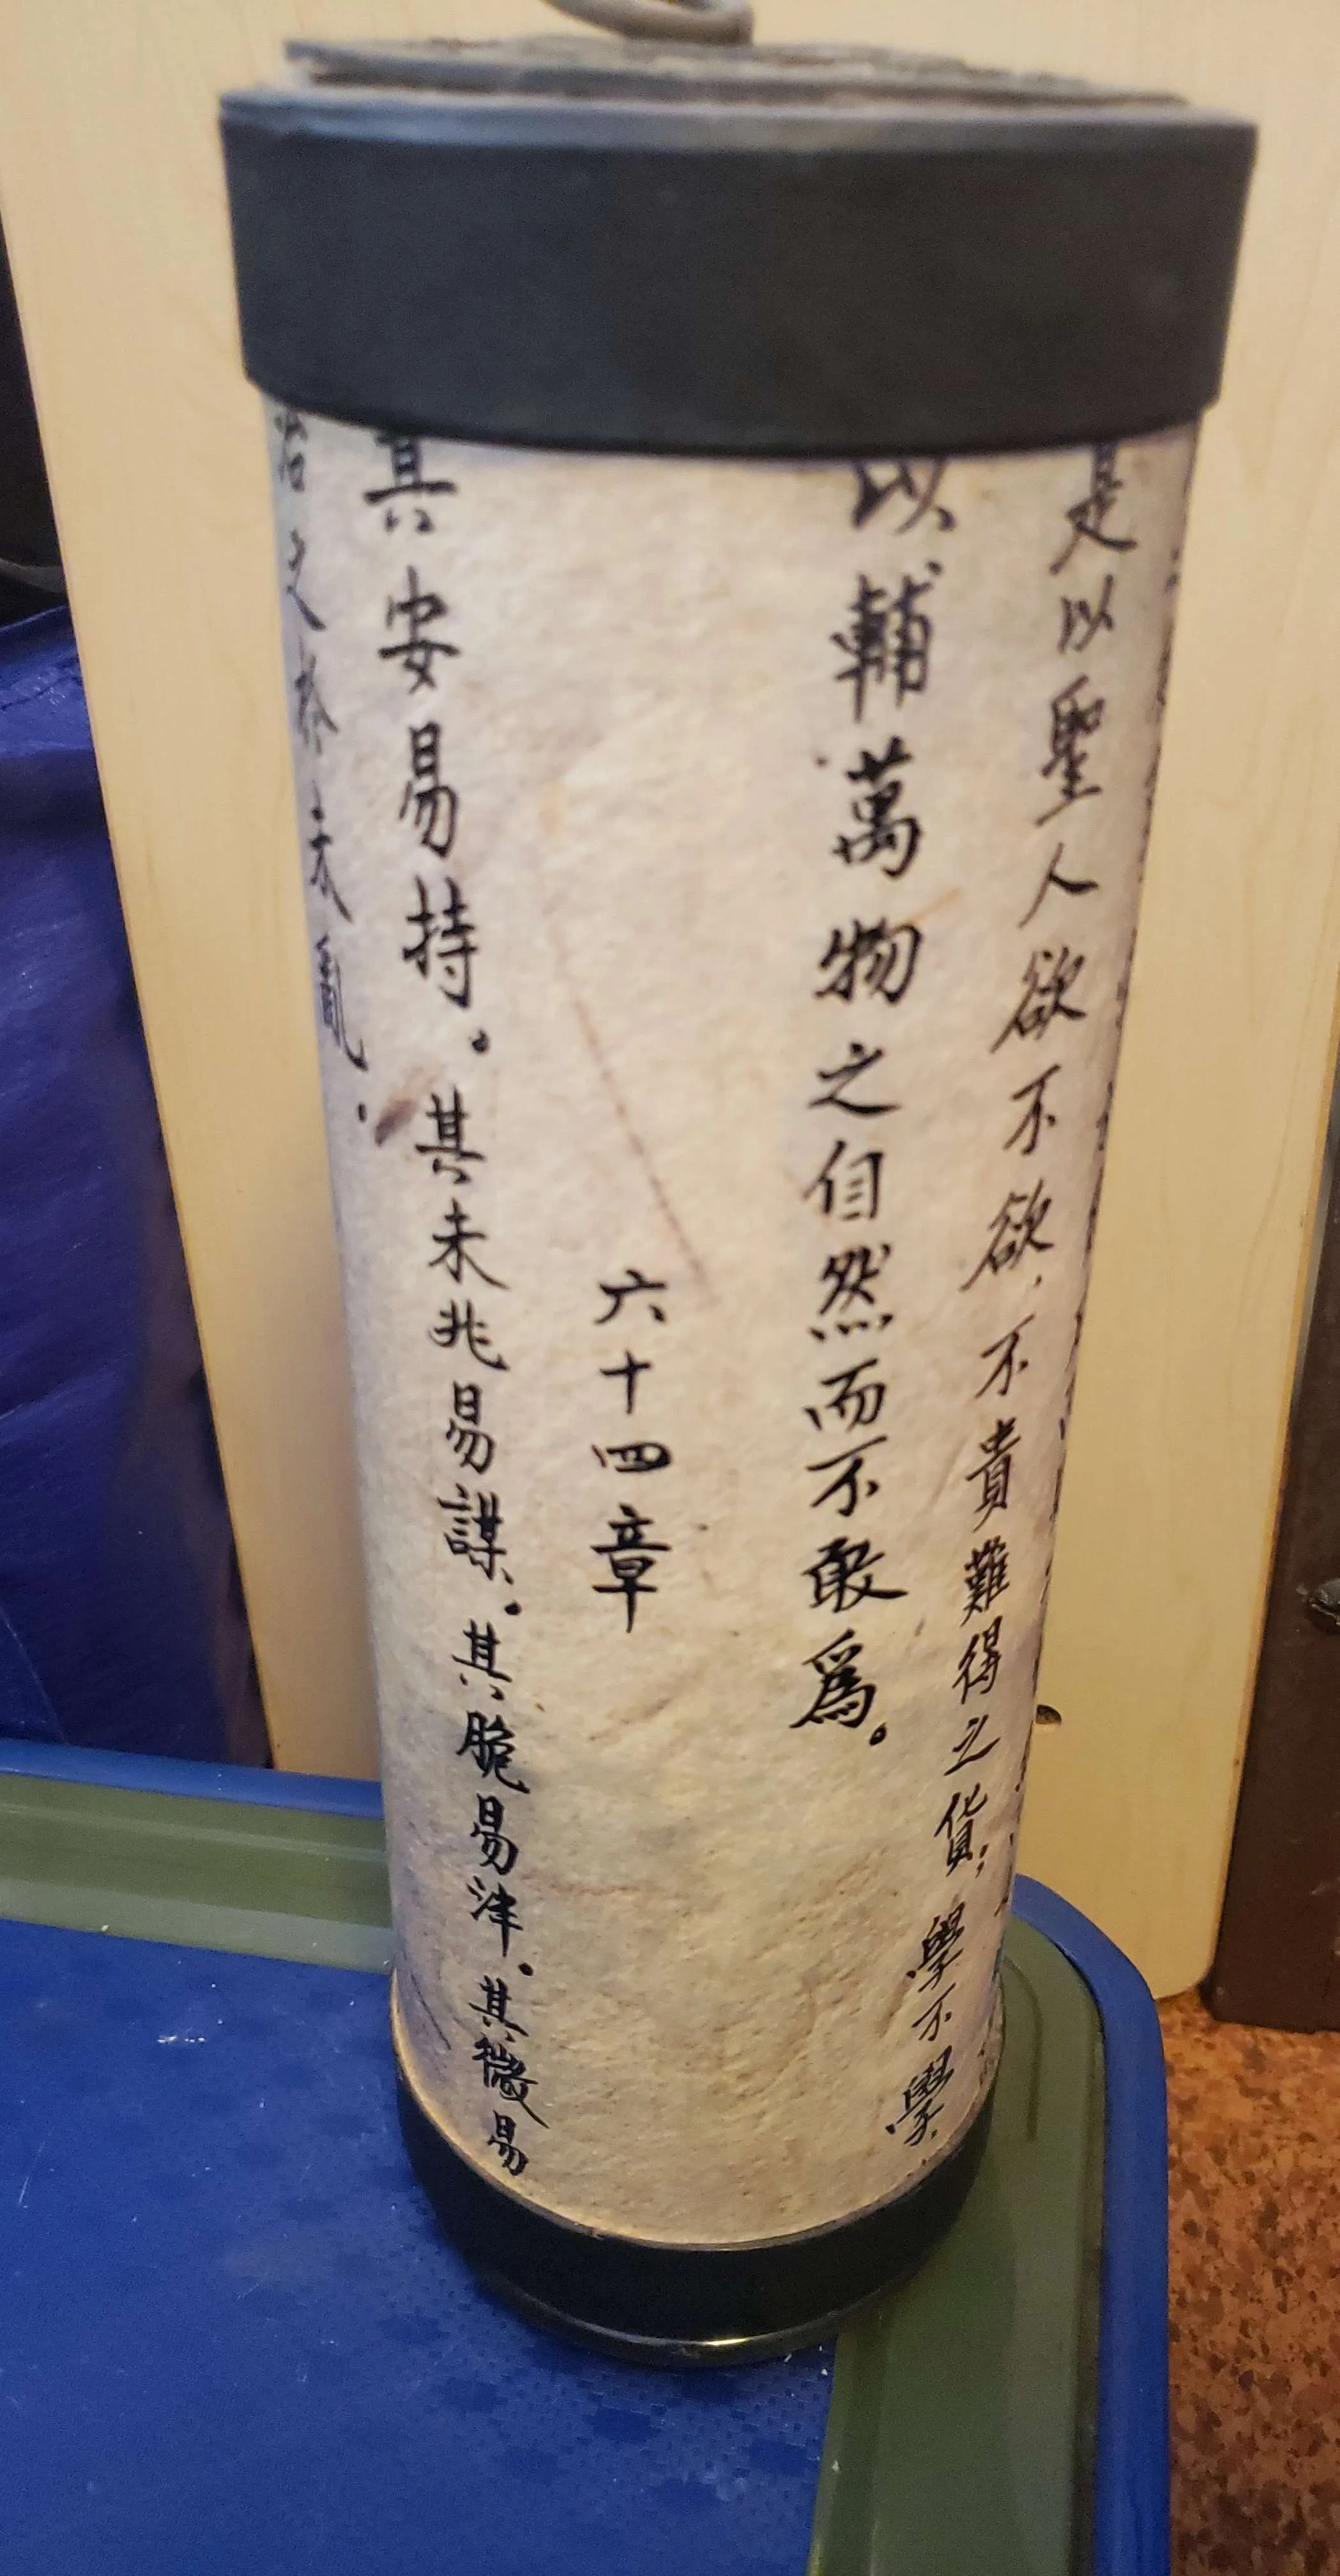 是以聖人欲不欲,不貴難得之貨;學不學,
以輔萬物之自然而不敢爲。
六十四章
其安易持。其未兆易謀。其脆易津。其微易
治之於未亂。